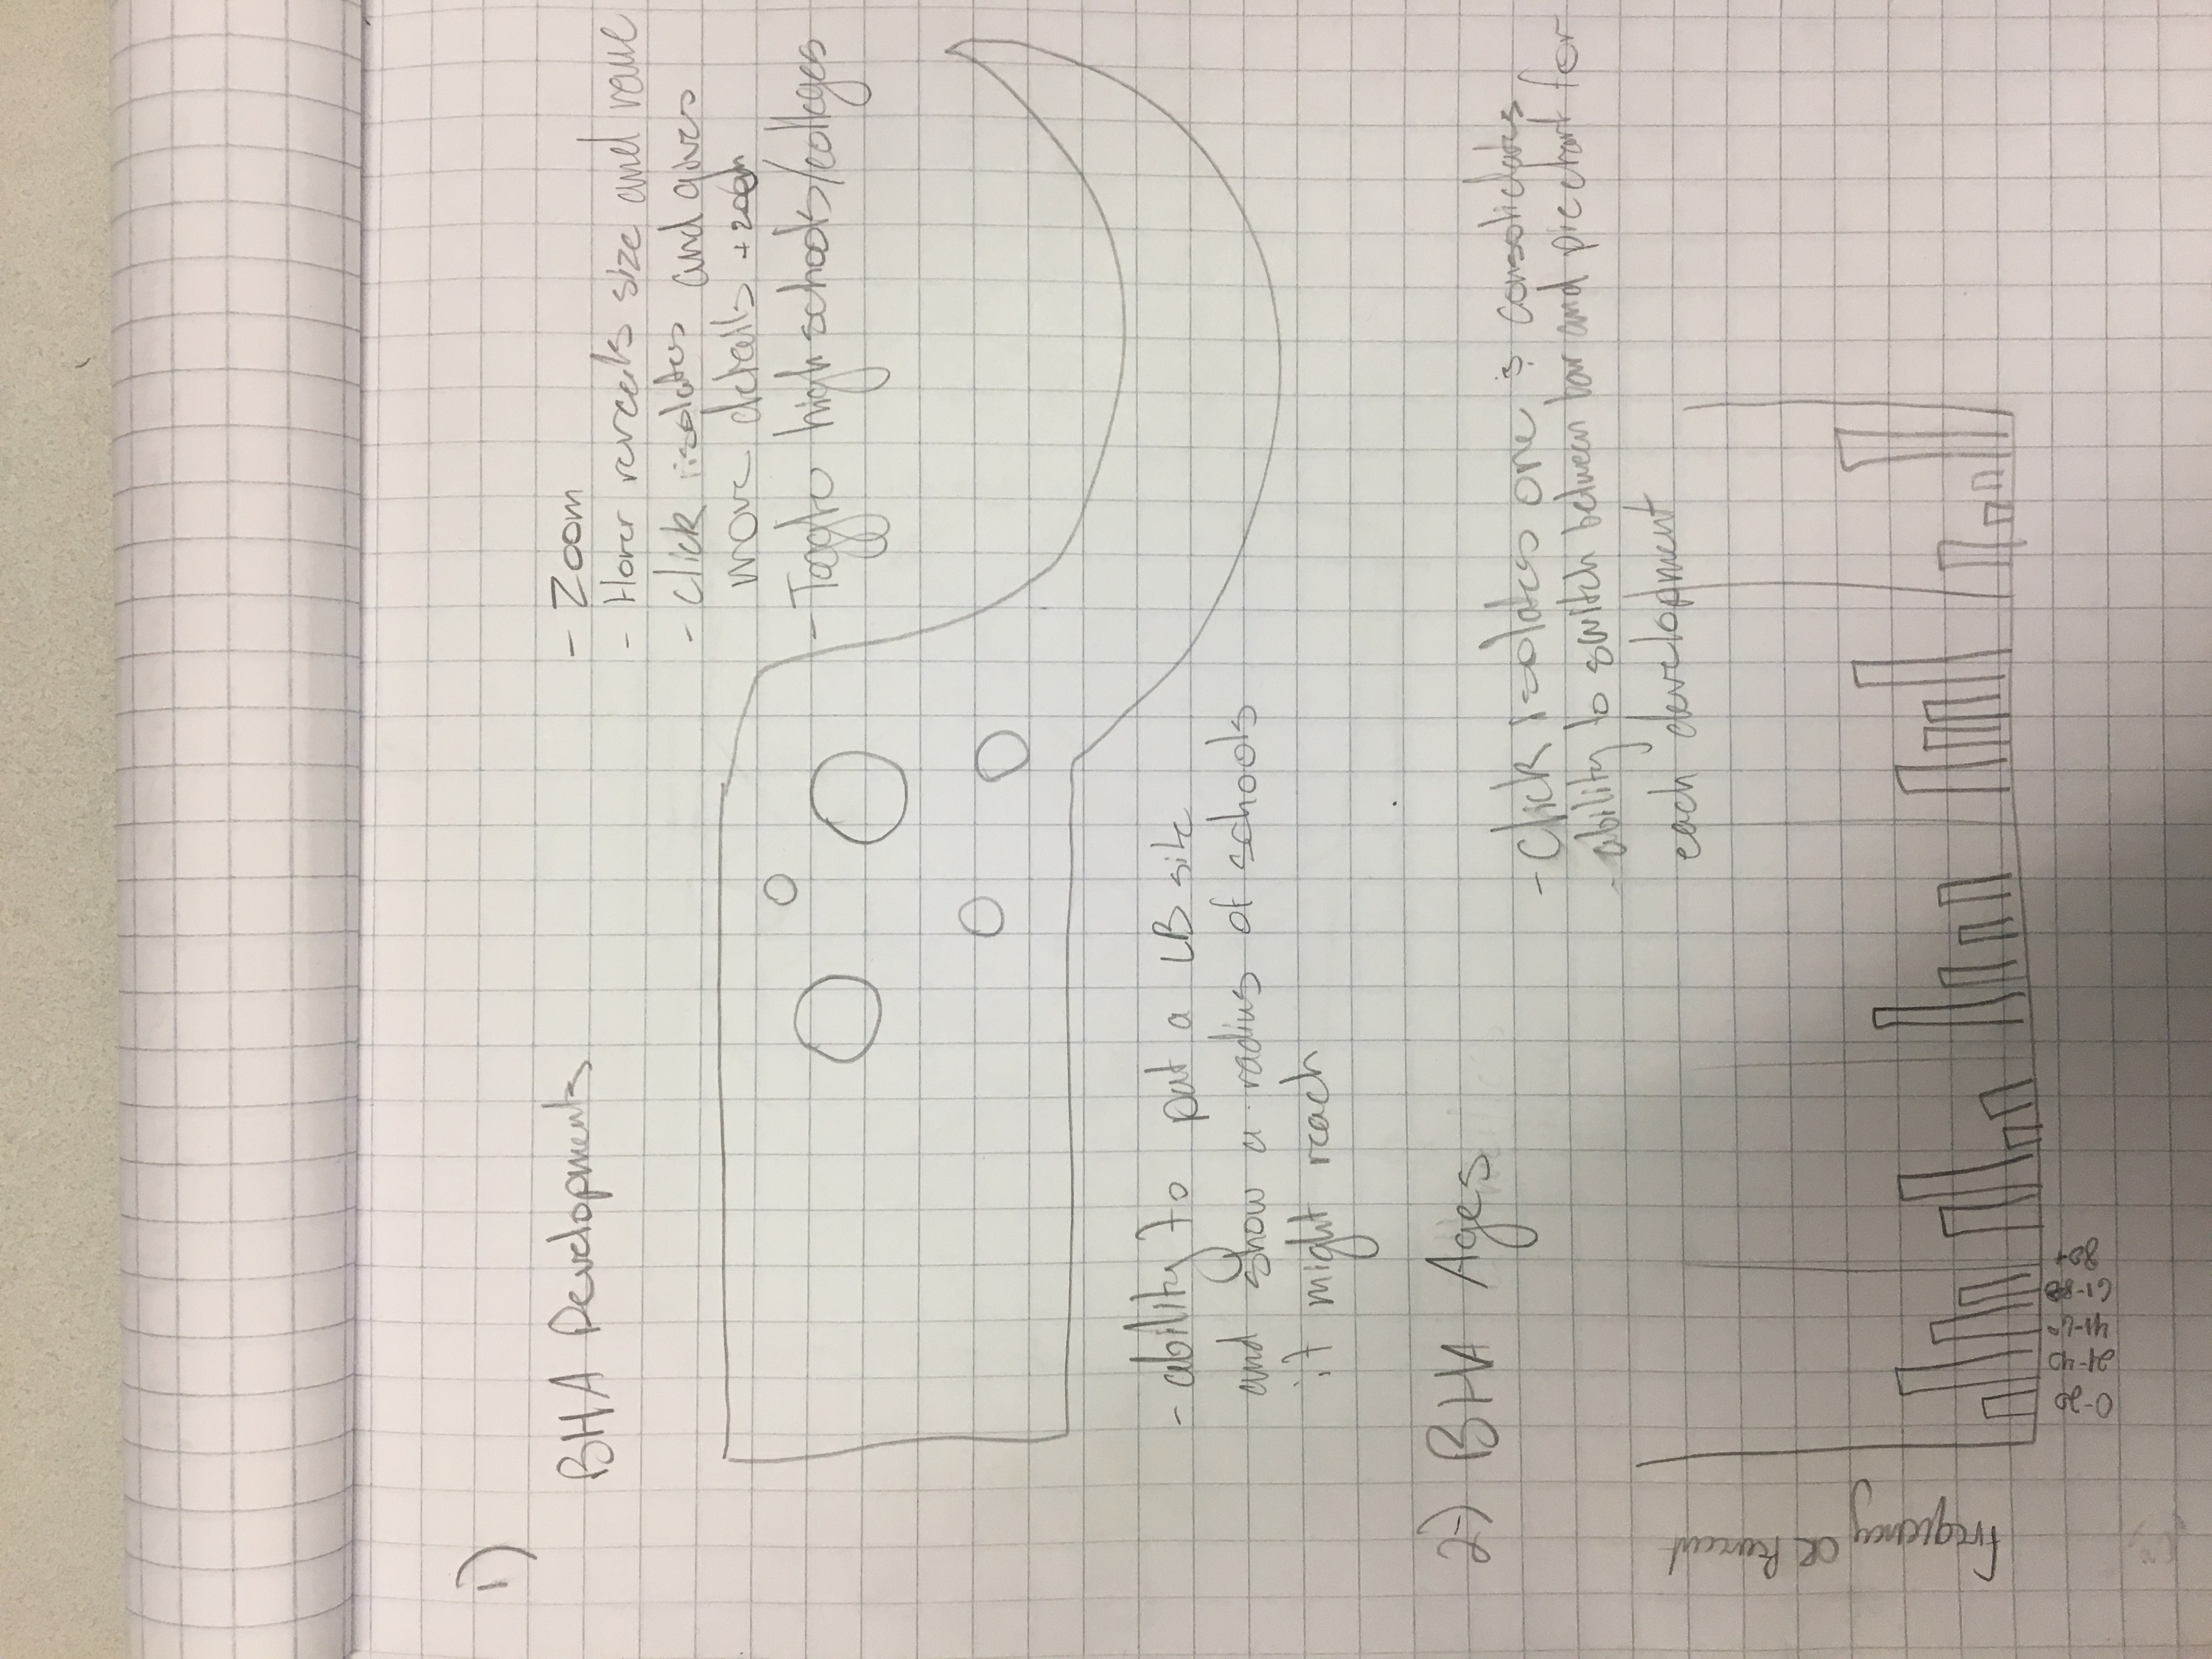 1)
BHA Developments
- Zoom
- Hover reveals size and name
- click isolates and gives
more details + zoom
- Toggle high schools/colleges
- ability to put a LB site
and show a radius of schools
it might reach
2) BHA Ages
- Click isolates one & consolidates
- ability to switch between bar and pie chart for
each development
frequency OR Percent
0-20
21-40
41-60
61-80
80+